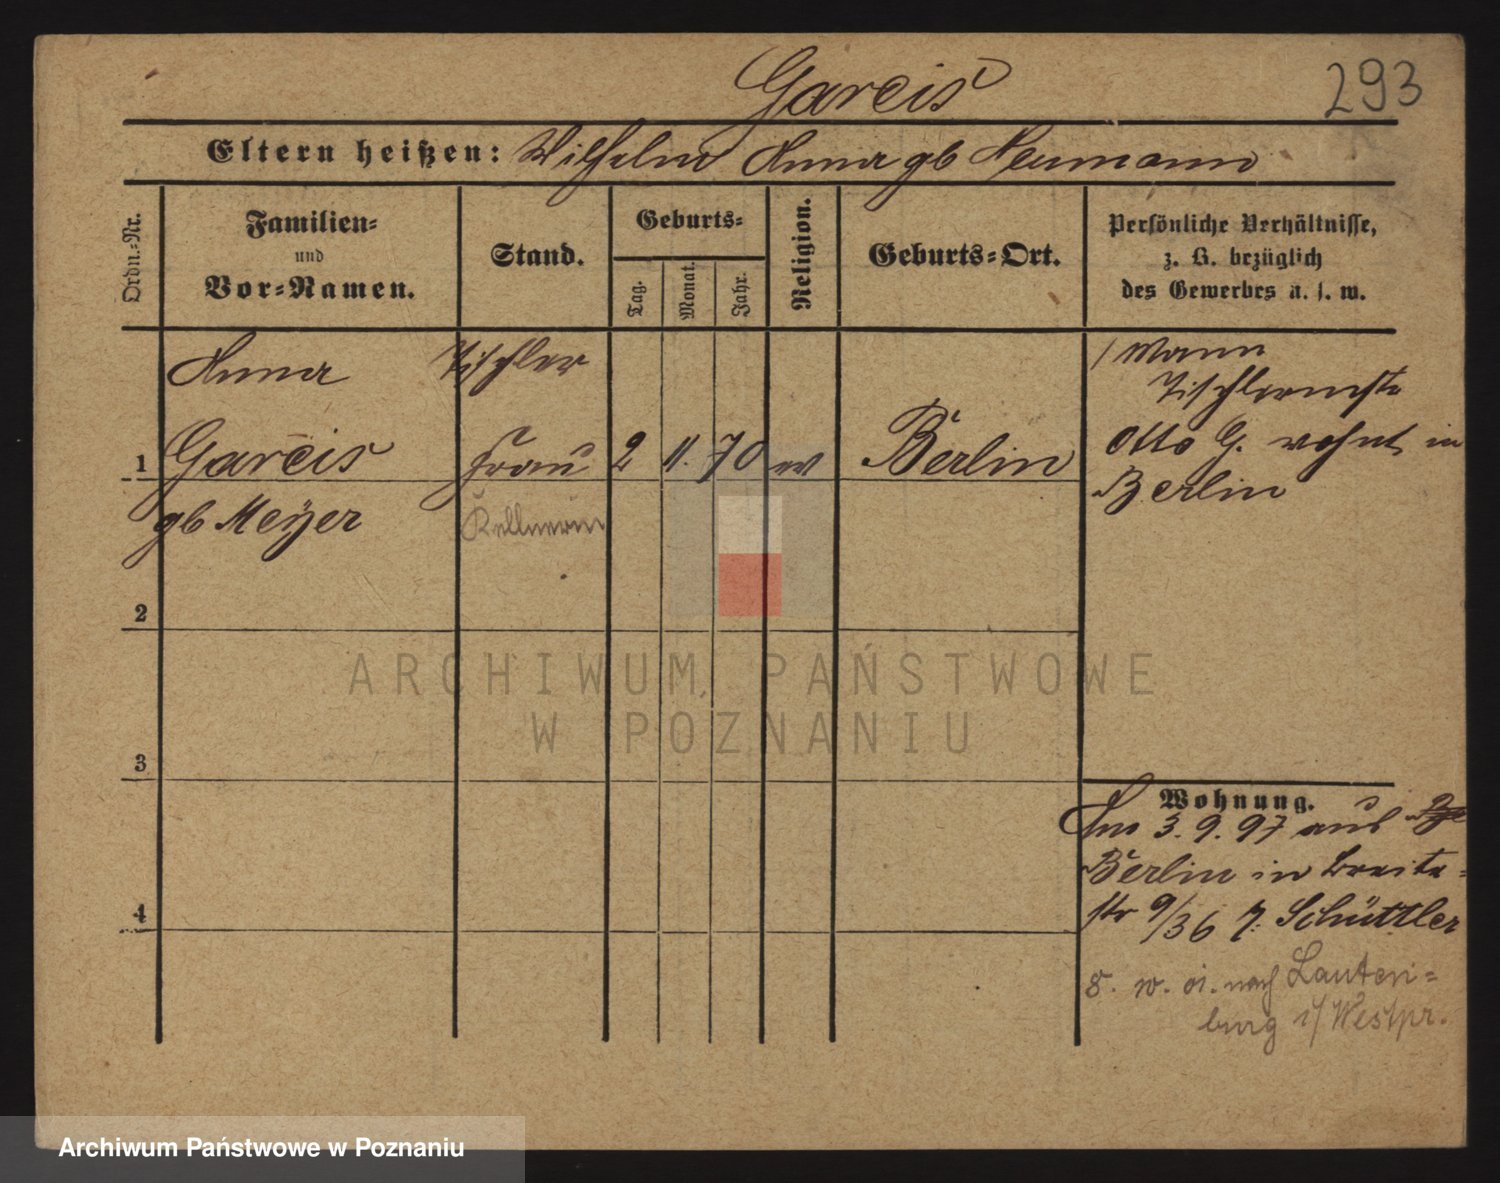 Gareis
293
Eltern heißen: Wilhelm Anna gb Neumann
Ordn.-Nr.
Familien-
und
Vor-Namen.
Stand.
Geburts-
Tag.
Monat.
Jahr.
Religion.
Geburts-Ort.
Persönliche Verhältnisse,
z. B. bezüglich
des Gewerbes u. s. w.
Anna
Tischler
1
Gareis
frau
2
11.
70
ev
Berlin
gb Meyer
Kellnerin
/ Mann
Tischlermstr
Otto G. wohnt in
Berlin
2
3
4
Wohnung.
Am 3. 9. 97 aus
Berlin in Breite-
str 9/36 b. Schüttler
nach Lauten-
burg i/ Westpr.
ARCHIWUM PAŃSTWOWE
W POZNANIU
Archiwum Państwowe w Poznaniu